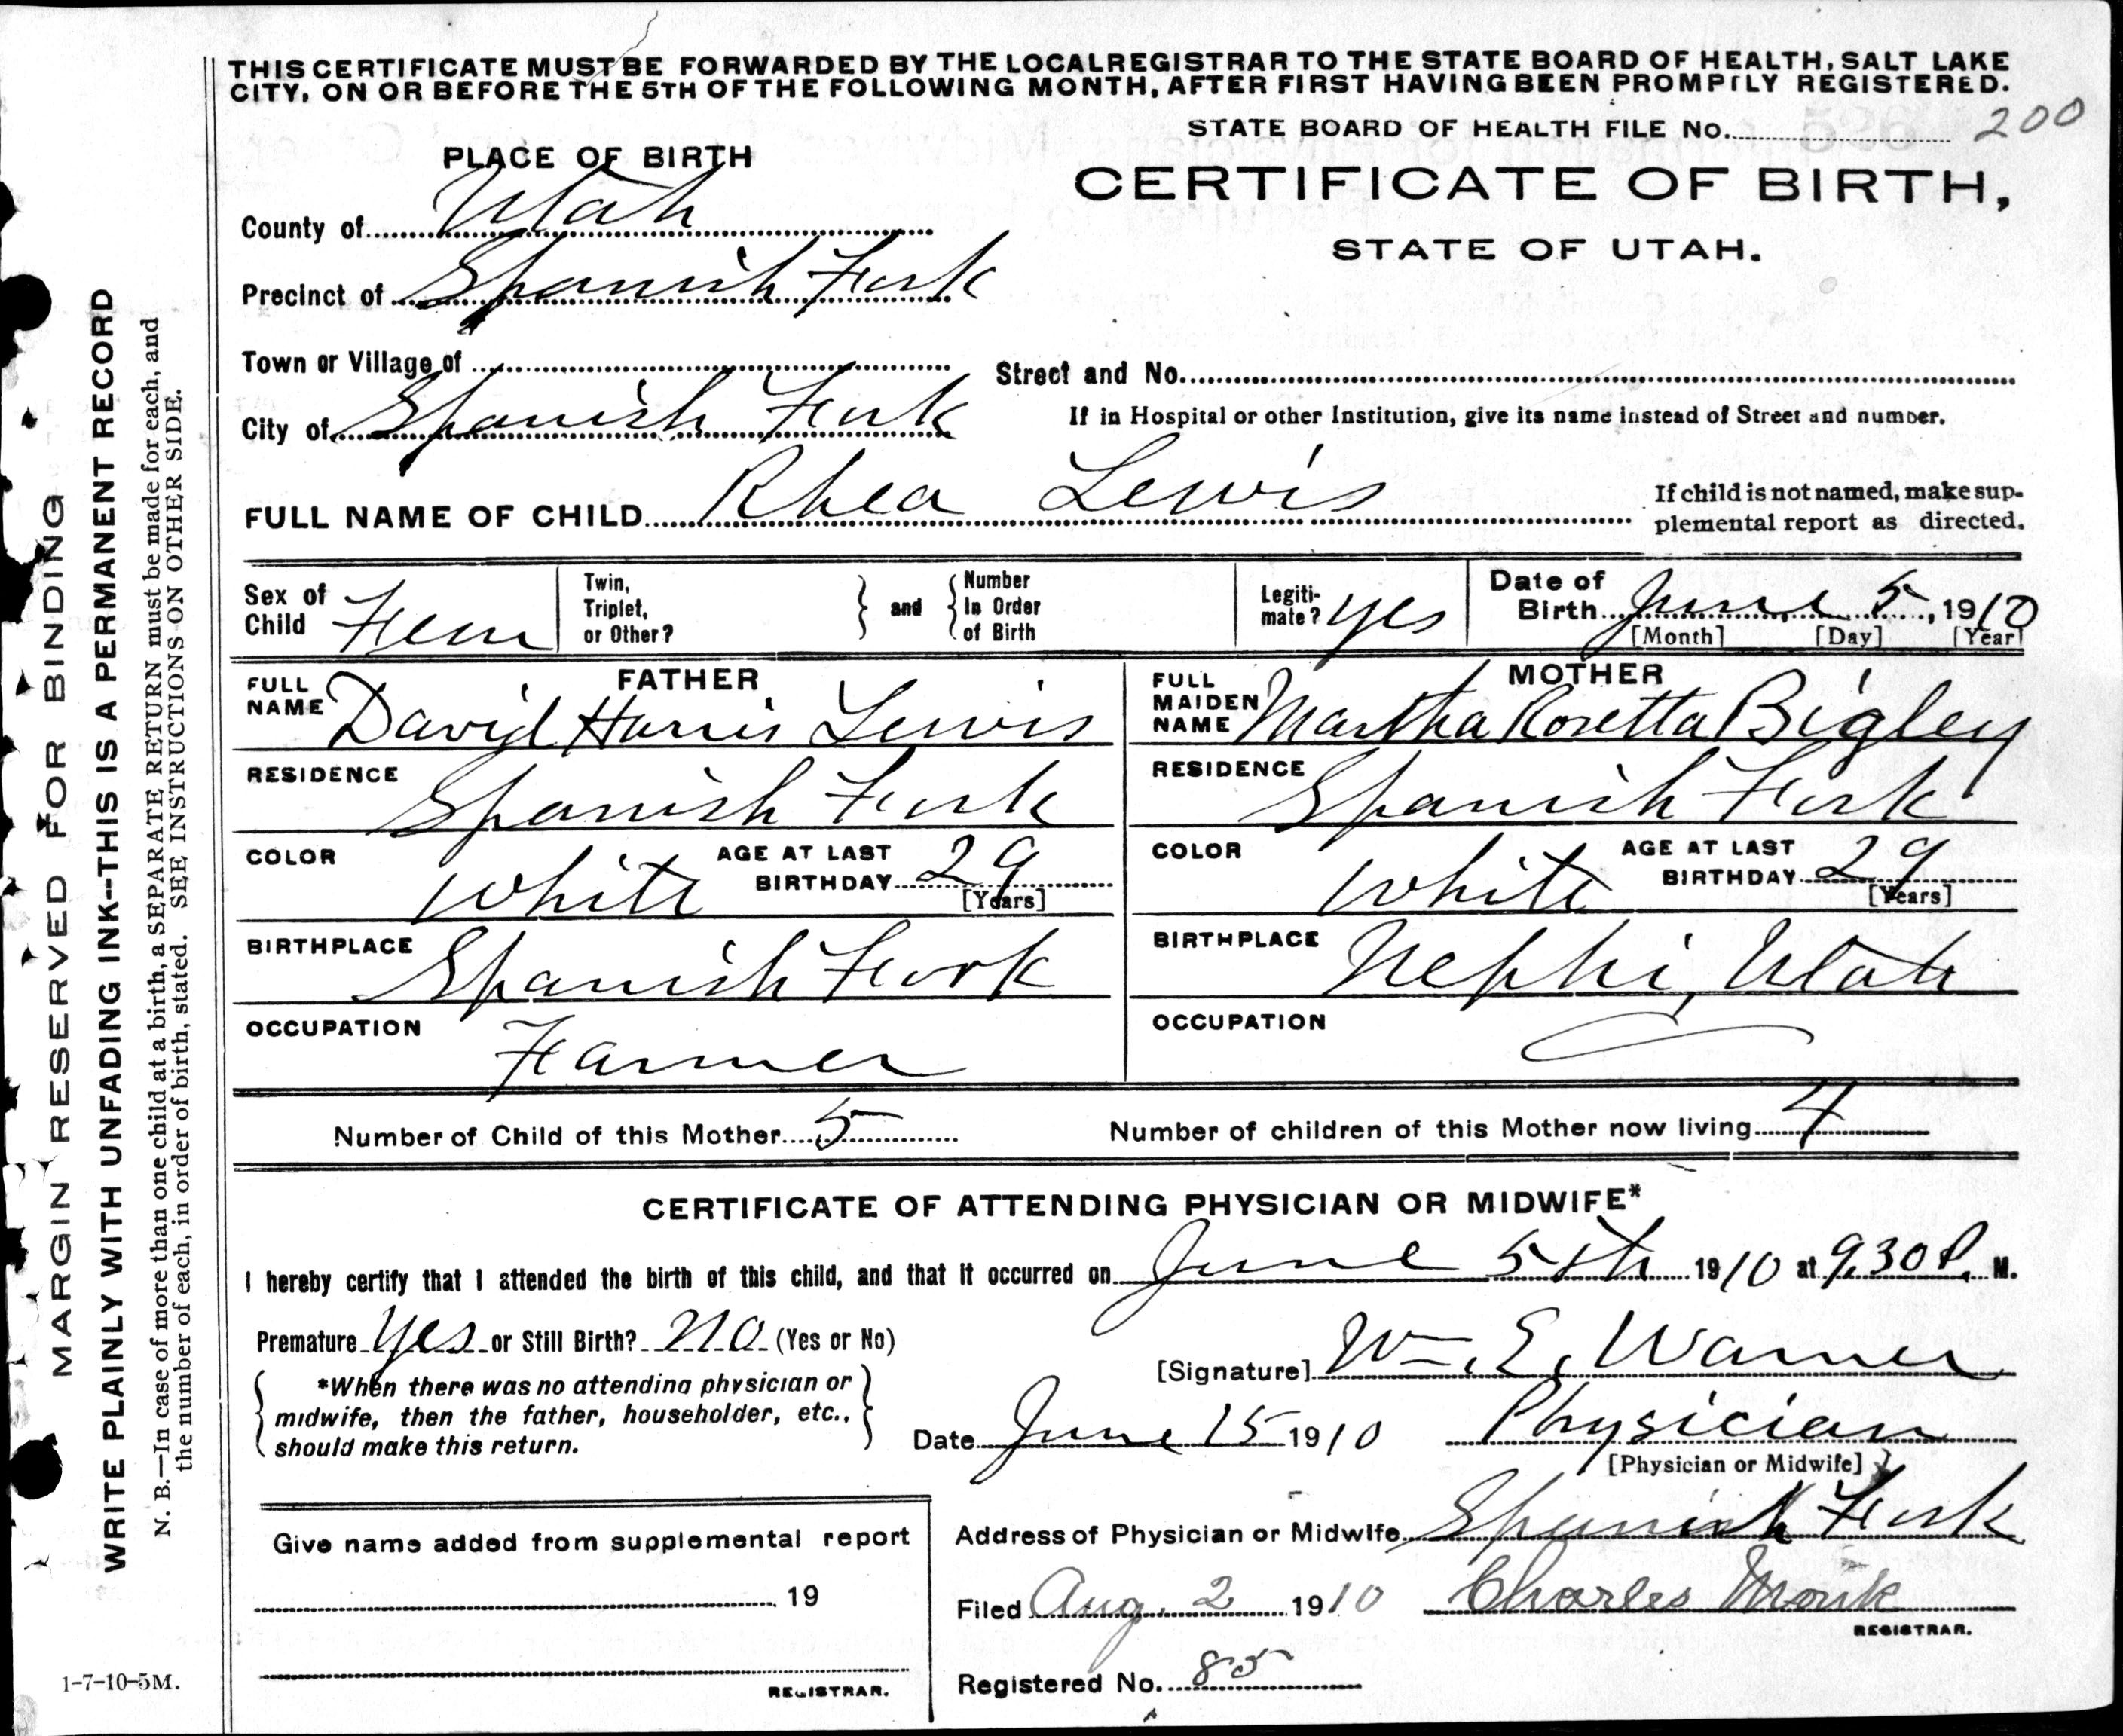 THIS CERTIFICATE MUST BE FORWARDED BY THE LOCAL REGISTRAR TO THE STATE BOARD OF HEALTH, SALT LAKE
CITY, ON OR BEFORE THE 5TH OF THE FOLLOWING MONTH, AFTER FIRST HAVING BEEN PROMPTLY REGISTERED.
STATE BOARD OF HEALTH FILE No. 200
PLACE OF BIRTH
CERTIFICATE OF BIRTH,
STATE OF UTAH.
County of Utah
Precinct of Spanish Fork
Town or Village of
Street and No.
City of Spanish Fork
If in Hospital or other Institution, give its name instead of Street and number.
FULL NAME OF CHILD Rhea Lewis
If child is not named, make sup-
plemental report as directed.
Sex of Child Fem
Twin, Triplet, or Other? } and { Number In Order of Birth
Legiti-mate? yes
Date of Birth June 5, 1910
[Month] [Day] [Year]
FATHER
FULL NAME David Harris Lewis
RESIDENCE Spanish Fork
COLOR White AGE AT LAST BIRTHDAY 29
[Years]
BIRTHPLACE Spanish Fork
OCCUPATION Farmer
MOTHER
FULL MAIDEN NAME Martha Rosetta Bigley
RESIDENCE Spanish Fork
COLOR White AGE AT LAST BIRTHDAY 29
[Years]
BIRTHPLACE Nephi, Utah
OCCUPATION
Number of Child of this Mother 5 Number of children of this Mother now living 4
CERTIFICATE OF ATTENDING PHYSICIAN OR MIDWIFE*
I hereby certify that I attended the birth of this child, and that it occurred on June 5th 1910 at 9.30 P. M.
Premature yes or Still Birth? no (Yes or No)
*When there was no attending physician or
midwife, then the father, householder, etc.,
should make this return.
[Signature] Wm. E. Warner
Date June 15 1910 Physician
[Physician or Midwife]
Address of Physician or Midwife Spanish Fork
Filed Aug. 2 1910 Charles Monk
REGISTRAR.
Registered No. 85
Give name added from supplemental report
19
REGISTRAR.
MARGIN RESERVED FOR BINDING
WRITE PLAINLY WITH UNFADING INK--THIS IS A PERMANENT RECORD
N. B.—In case of more than one child at a birth, a SEPARATE RETURN must be made for each, and
the number of each, in order of birth, stated. SEE INSTRUCTIONS ON OTHER SIDE.
1-7-10-5M.